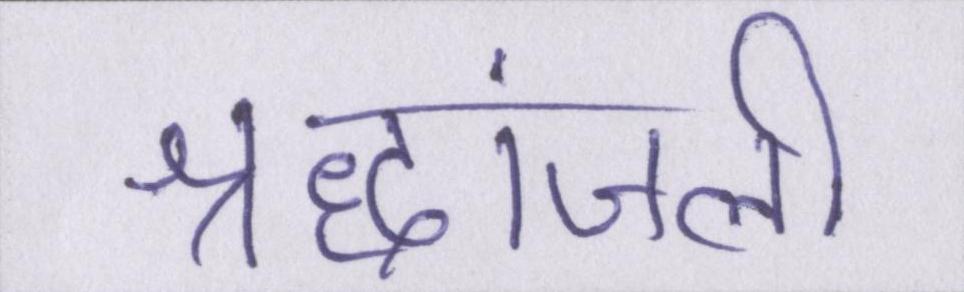 श्रद्धांजली